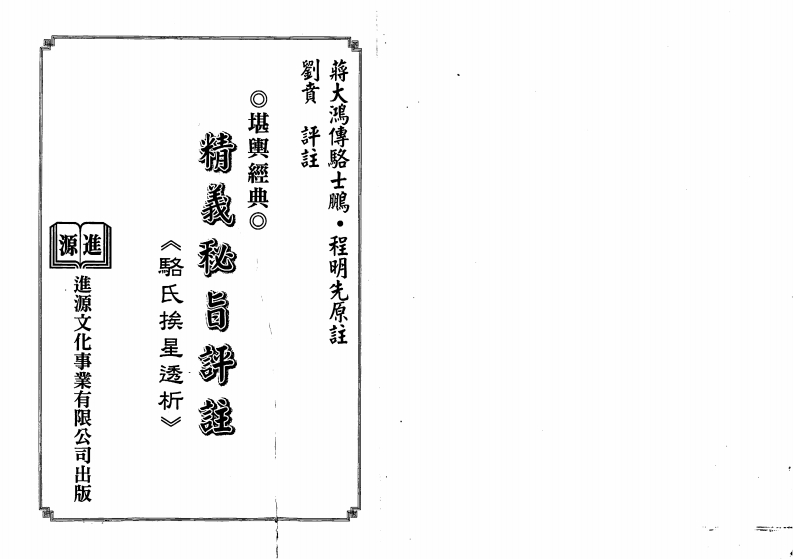 蔣大鴻傳駱士鵬・程明先原註
劉賁 評註
◎堪輿經典◎
精義秘旨評註
《駱氏挨星透析》
進源
進源文化事業有限公司出版